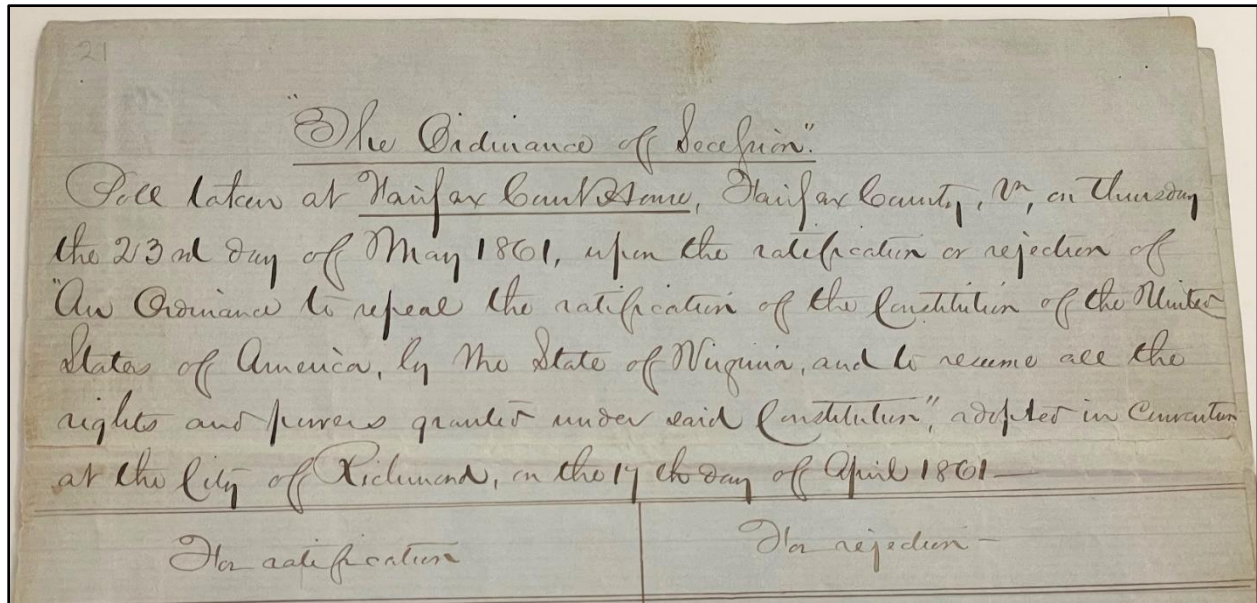 21
"The Ordinance of Secession".
Poll taken at Fairfax Court House, Fairfax County, Va, on Thursday
the 23rd day of May 1861, upon the ratification or rejection of
"An Ordinance to repeal the ratification of the Constitution of the United
States of America, by the State of Virginia, and to resume all the
rights and powers granted under said Constitution", adopted in Convention
at the City of Richmond, on the 17th day of April 1861—
For ratification
For rejection—